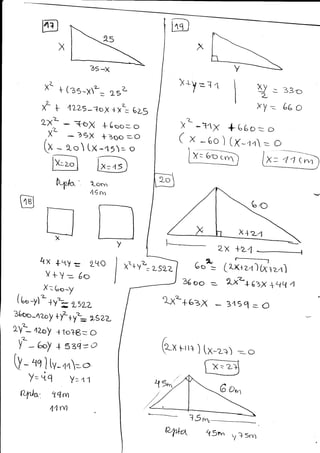 17
25
X
35-X
x² + (35-x)² = 25²
x² + 1225-70x+x² = 625
2x² - 70x + 600 = 0
x² - 35x + 300 = 0
(x - 20)(x-15) = 0
X=20 X=15
Rpta: 20m
15m
18
X
Y
4x + 4y = 240
x+y = 60
x=60-y
x²+y²=2522
(60-y)² + y² = 2522
3600-120y+y²+y²=2522
2y²-120y+1078=0
y²-60y+539=0
(y-49)(y-11)=0
Y=49 Y=11
Rpta: 49m
11m
19
X
Y
x+y=71
xy/2 = 330
xy = 660
x²-71x+660=0
(x-60)(x-11)=0
X=60cm X=11cm
20
60
X
X+21
2X+21
60² = (2x+21)(x+21)
3600 = 2x²+63x+441
2x²+63x-3159=0
(2x+117)(x-27)=0
X=27
45m
60m
75m
Rpta 45m y 75m